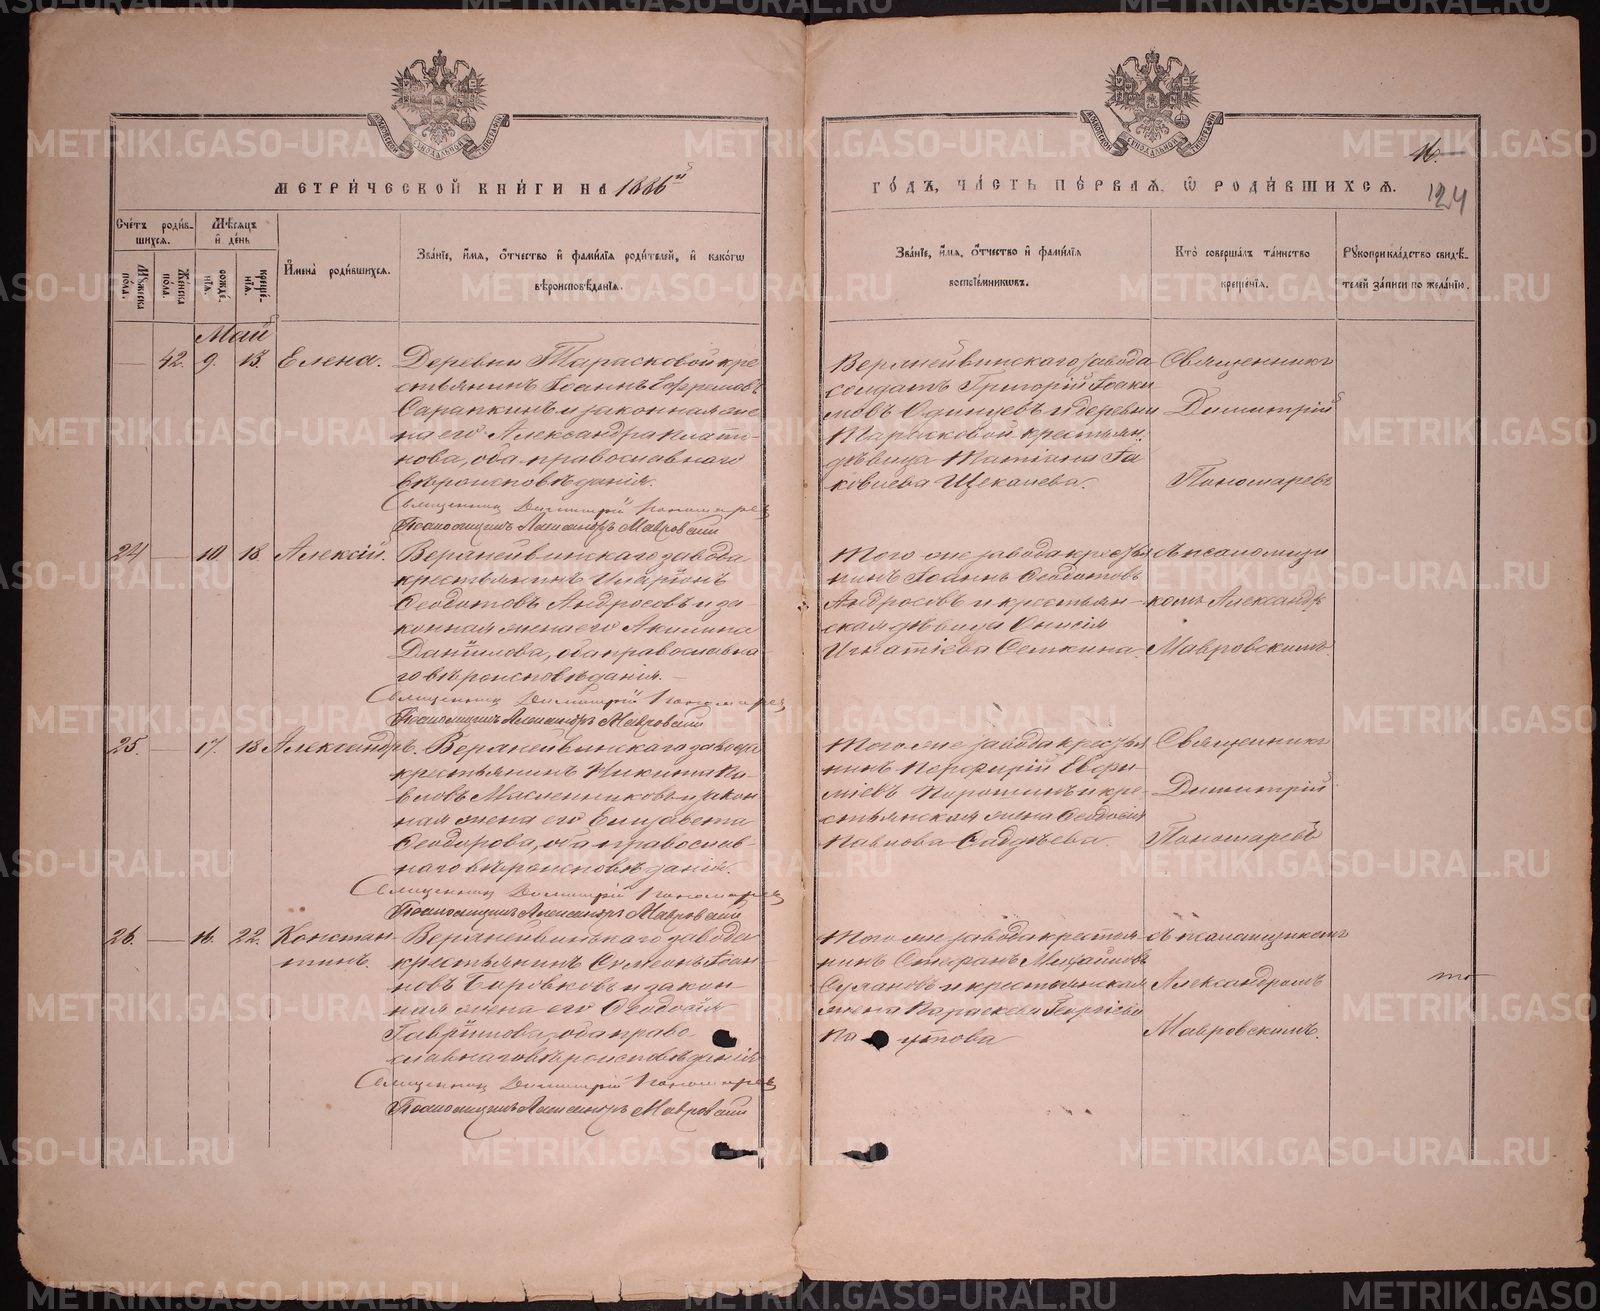 МЕТРИ́ЧЕСКОЙ КНИ́ГИ НА 1886й
ГО́ДЪ, ЧА́СТЬ ПЕ́РВАЯ, Ѿ РОДИ́ВШИХСЯ.
16.
124
Сче́тъ роди́в-
шихся.
Мꙋжеска по́ла.
Же́нска по́ла.
Мѣсяцъ и де́нь
рожде́нїя.
креще́нїя.
Имена̀ роди́вшихся.
Зва́нїе, и́мя, о́тчество и фами́лїя роди́телей, и како́гѡ
вѣроисповѣ́данїя.
Зва́нїе, и́мя, о́тчество и фами́лїя
воспрїе́мникѡвъ.
Кто̀ соверша́лъ та́инство
креще́нїя.
Рꙋкоприкла́дство свидѣ́-
телей за́писи по жела́нїю.
Май
— 42. 9. 13. Елена.
Деревни Тарасковой кре
стьянинъ Іоаннъ Ефремовъ
Сарапкинъ и законная же
на его Александра Плато-
нова, оба православнаго
вѣроисповѣданія.
Священникъ Димитрій Пономаревъ
Псаломщикъ Александръ Мавровскій
Верхнейвинскаго завода
солдатъ Григорій Іоаки
мовъ Одинцевъ и деревни
Тарасковой крестьян.
дѣвица Татіана Іа
ковлева Щекалева.
Священникъ
Димитрій
Пономаревъ
24 — 10. 18. Алексій.
Верхнейвинскаго завода
крестьянинъ Иларіонъ
Ѳеодотовъ Андросовъ и за-
конная жена его Акилина
Даніилова, оба православна-
го вѣроисповѣданія.
Священникъ Димитрій Пономаревъ
Псаломщикъ Александръ Мавровскій
Того же завода крестья
нинъ Іоаннъ Ѳеодотовъ
Андросовъ и крестьян-
ская дѣвица Онисія
Игнатіева Семкина.
съ псаломщи
комъ Александр
Мавровскимъ.
25. — 17. 18. Александръ.
Верхнейвинскаго завода
крестьянинъ Никита Па-
вловъ Масленниковъ и закон-
ная жена его Елизавета
Ѳеодорова, оба православ-
наго вѣроисповѣданія.
Священникъ Димитрій Пономаревъ
Псаломщикъ Александръ Мавровскій
Того же завода крестья
нинъ Перфирій Евфи-
міевъ Порошинъ и кре-
стьянская жена Ѳеодосія
Павлова
Священникъ
Димитрій
Пономаревъ
26. — 16. 22. Констан-
тинъ.
Верхнейвинскаго завода
крестьянинъ Симеонъ Іоан-
новъ и закон-
ная жена его Ѳеодосія
Гавріилова, оба право
славнаго вѣроисповѣданія
Священникъ Димитрій Пономаревъ
Псаломщикъ Александръ Мавровскій
Того же завода крестья
нинъ Стефанъ Михайловъ
и крестьянская
жена Параскева Георгіева
съ псаломщикомъ
Александромъ
Мавровскимъ.
METRIKI.GASO-URAL.RU